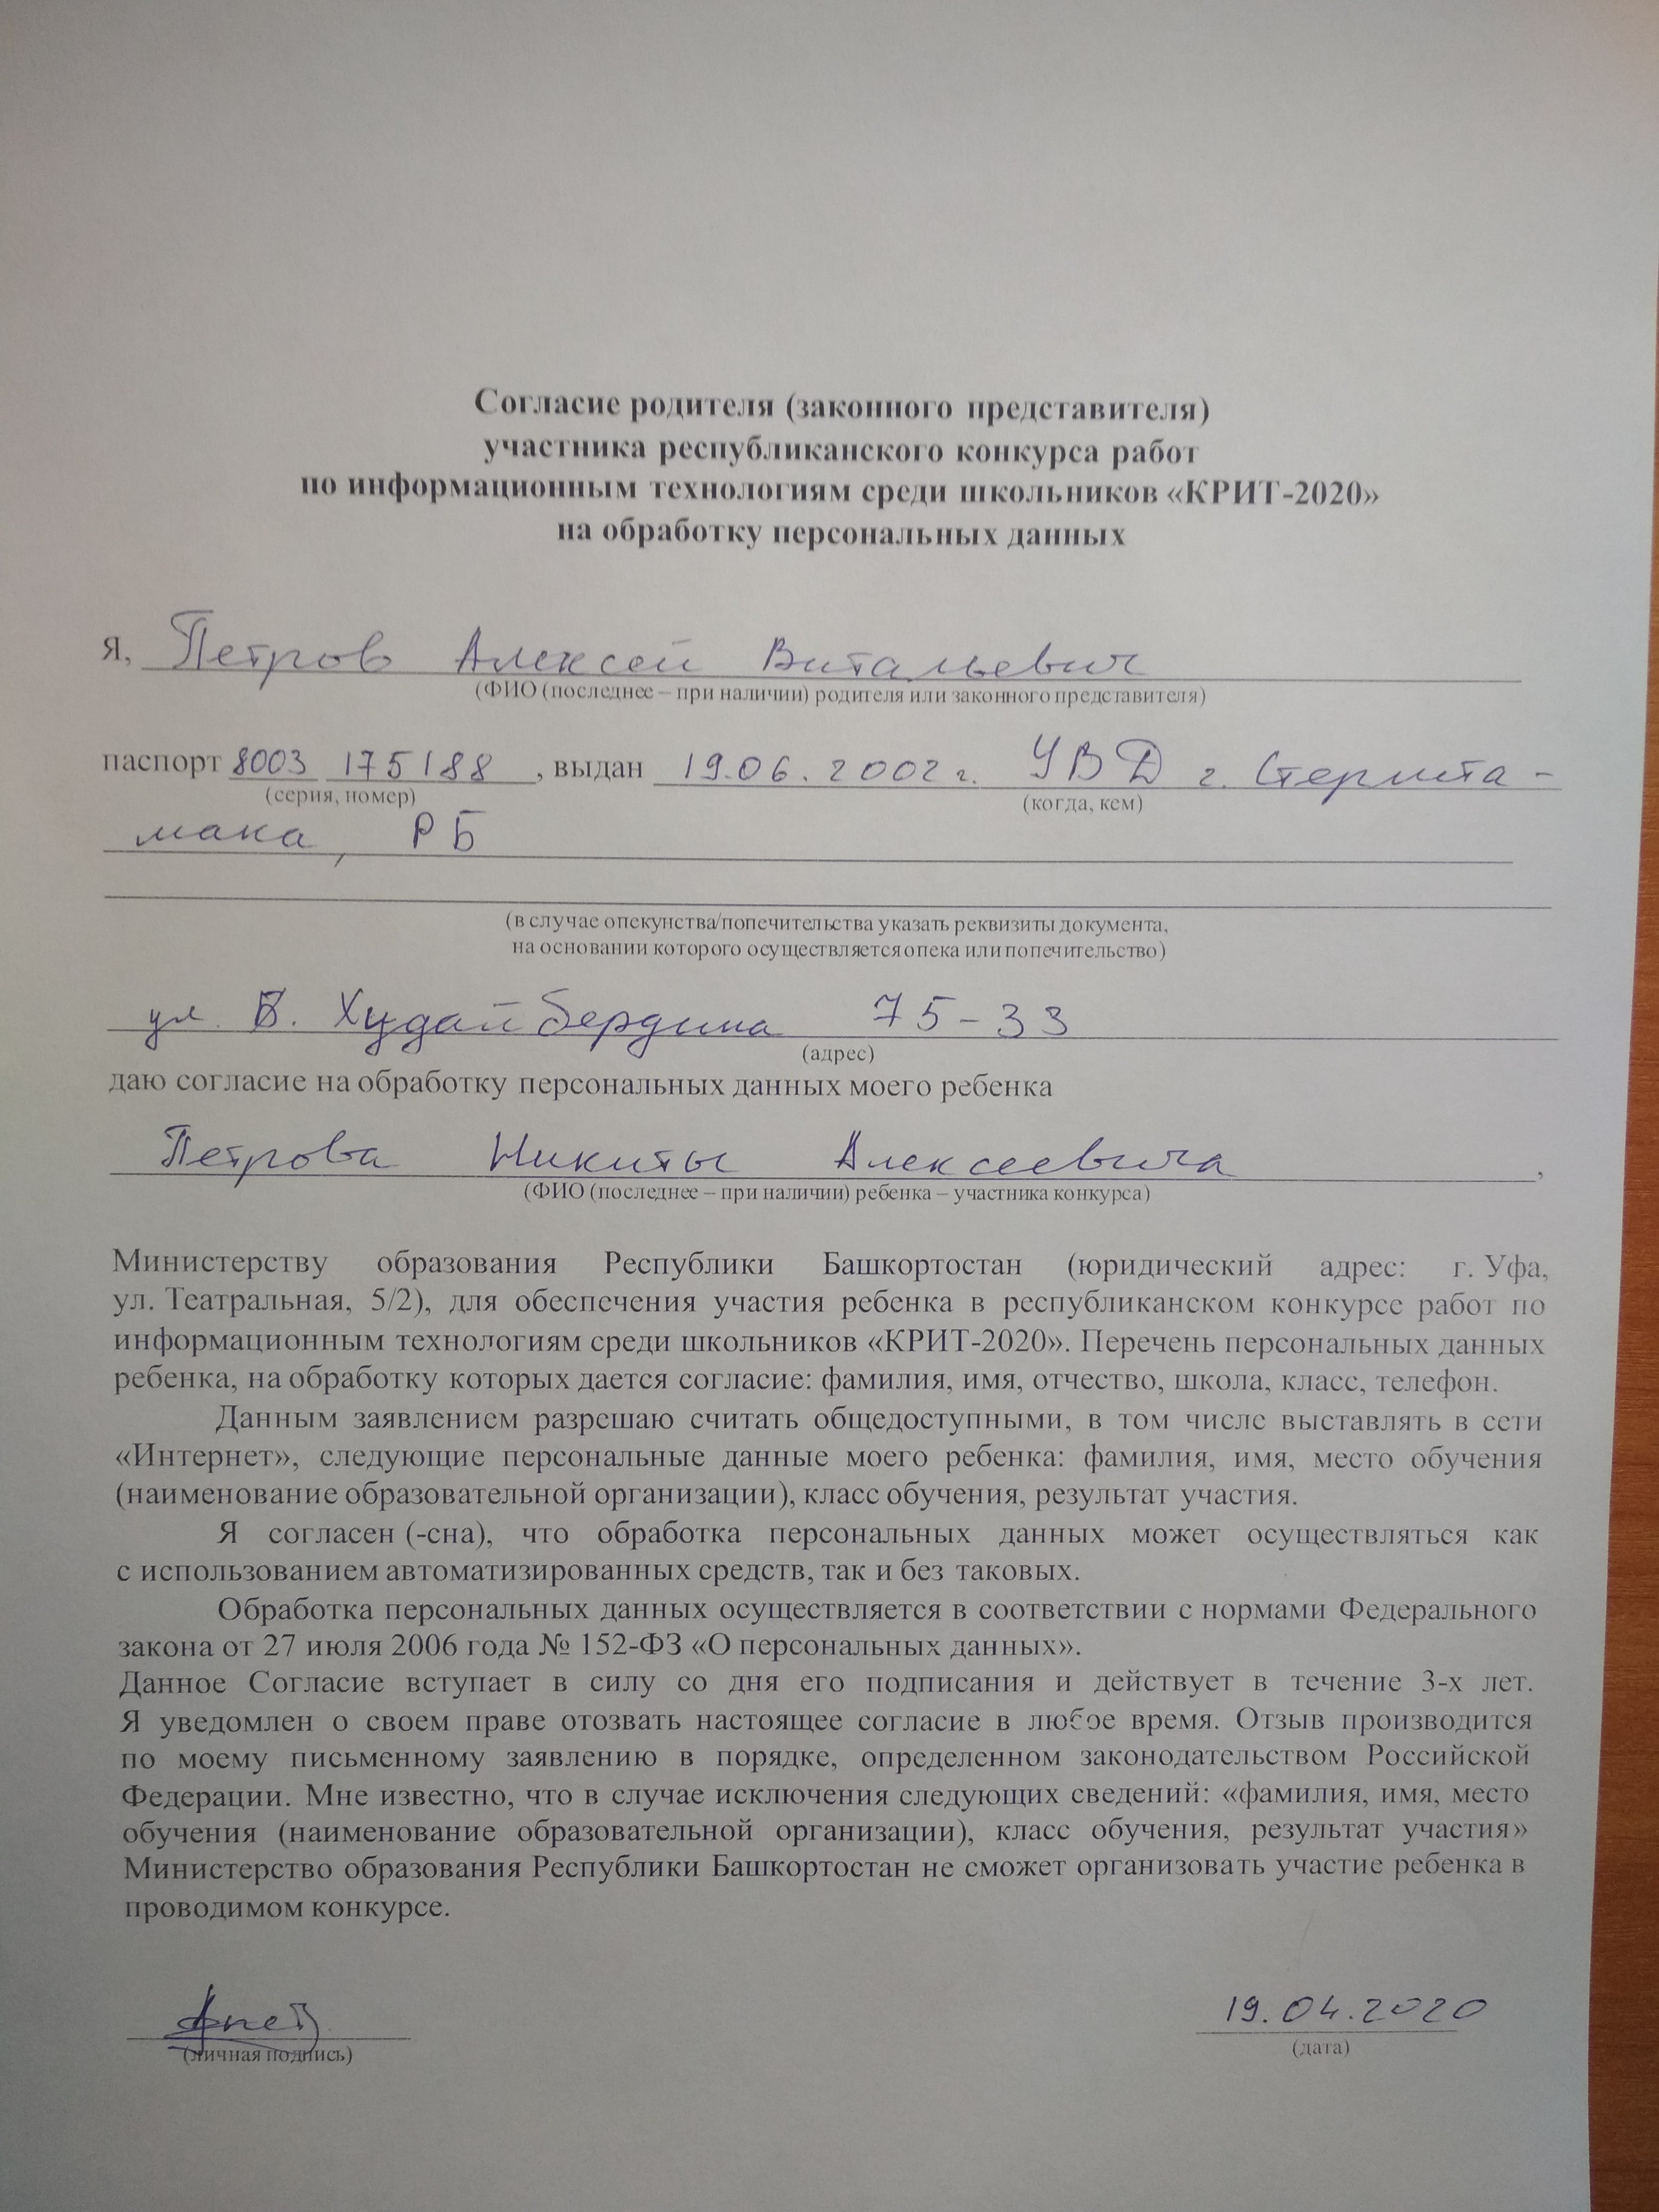 Согласие родителя (законного представителя)
участника республиканского конкурса работ
по информационным технологиям среди школьников «КРИТ-2020»
на обработку персональных данных
Я, Петров Алексей Витальевич
(ФИО (последнее – при наличии) родителя или законного представителя)
паспорт 8003 175188, выдан 19.06.2002 г. УВД г. Стерлита-
(серия, номер) (когда, кем)
мака, РБ
(в случае опекунства/попечительства указать реквизиты документа,
на основании которого осуществляется опека или попечительство)
ул. Б. Худайбердина 75-33
(адрес)
даю согласие на обработку персональных данных моего ребенка
Петрова Никиты Алексеевича,
(ФИО (последнее – при наличии) ребенка – участника конкурса)
Министерству образования Республики Башкортостан (юридический адрес: г. Уфа,
ул. Театральная, 5/2), для обеспечения участия ребенка в республиканском конкурсе работ по
информационным технологиям среди школьников «КРИТ-2020». Перечень персональных данных
ребенка, на обработку которых дается согласие: фамилия, имя, отчество, школа, класс, телефон.
Данным заявлением разрешаю считать общедоступными, в том числе выставлять в сети
«Интернет», следующие персональные данные моего ребенка: фамилия, имя, место обучения
(наименование образовательной организации), класс обучения, результат участия.
Я согласен (-сна), что обработка персональных данных может осуществляться как
с использованием автоматизированных средств, так и без таковых.
Обработка персональных данных осуществляется в соответствии с нормами Федерального
закона от 27 июля 2006 года № 152-ФЗ «О персональных данных».
Данное Согласие вступает в силу со дня его подписания и действует в течение 3-х лет.
Я уведомлен о своем праве отозвать настоящее согласие в любое время. Отзыв производится
по моему письменному заявлению в порядке, определенном законодательством Российской
Федерации. Мне известно, что в случае исключения следующих сведений: «фамилия, имя, место
обучения (наименование образовательной организации), класс обучения, результат участия»
Министерство образования Республики Башкортостан не сможет организовать участие ребенка в
проводимом конкурсе.
19.04.2020
(личная подпись) (дата)